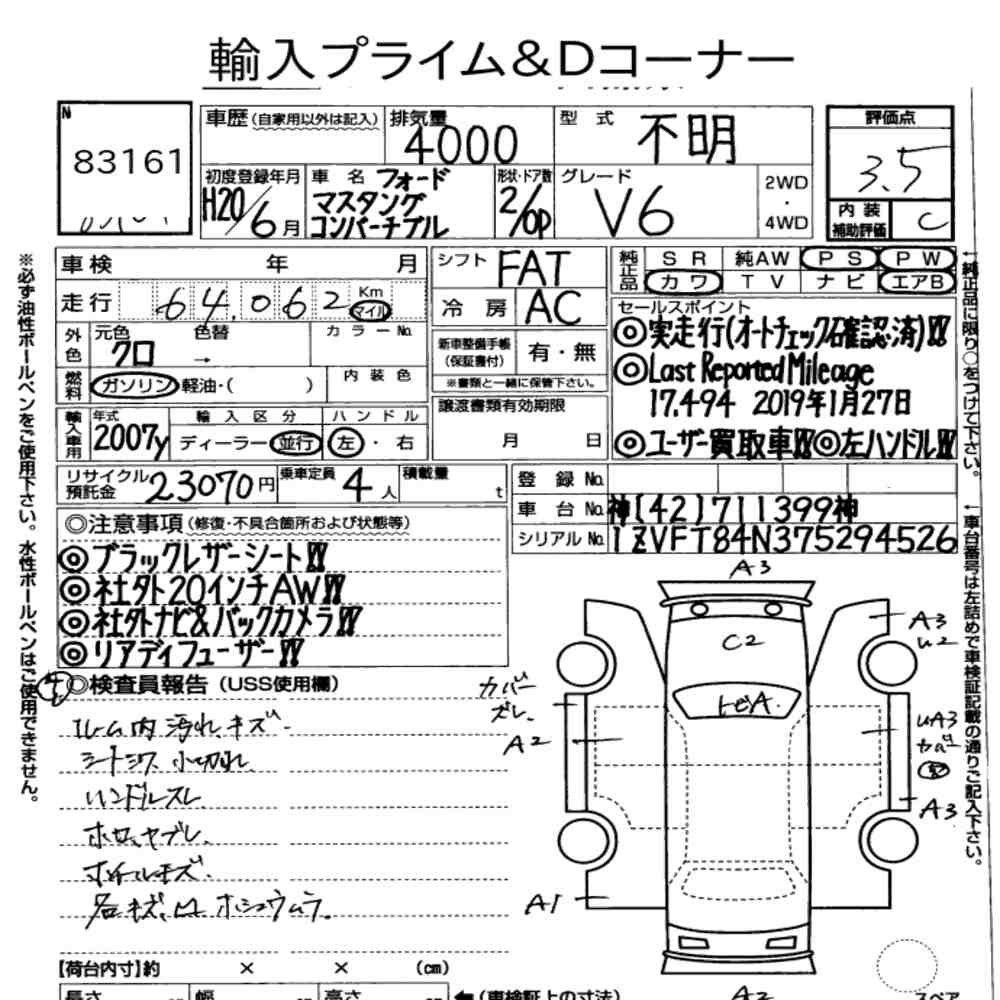 輸入プライム&Dコーナー
N
83161
車歴(自家用以外は記入)
排気量
4000
型 式
不明
評価点
3.5
初度登録年月
H20/6月
車 名
フォード
マスタング
コンバーチブル
形状・ドア数
2/OP
グレード
V6
2WD
・
4WD
内 装
補助評価
C
車 検 年 月
シフト
FAT
純正品
S R 純AW P S P W
カワ T V ナ ビ エアB
走 行 64,062 Km
マイル
冷 房
AC
セールスポイント
◎実走行(オートチェック確認済)!!
◎Last Reported Mileage
17.494 2019年1月27日
◎ユーザー買取車!!◎左ハンドル!!
外色
元色
クロ
色替
→
カラーNo.
新車整備手帳
(保証書付)
有・無
※書類と一緒に保管下さい。
燃料
ガソリン・軽油・( )
内 装 色
輸入車用
年式
2007y
輸 入 区 分
ディーラー・並行
ハ ン ド ル
左・右
譲渡書類有効期限
月 日
リサイクル
預託金
23070円
乗車定員
4人
積載量
t
登 録 No.
車 台 No.
神[42]711399神
シリアル No.
1ZVFT84N375294526
◎注意事項(修復・不具合箇所および状態等)
◎ブラックレザーシート!!
◎社外20インチAW!!
◎社外ナビ&バックカメラ!!
◎リアディフューザー!!
◎検査員報告(USS使用欄)
ルーム内汚れキズ
シートシワ 小切れ
ハンドルスレ
ホロ ヤブレ
カバー
ズレ
A2
A1
A3
C2
トビA
A3
U2
UA3
カバー
A3
A2
【荷台内寸】約 × × (cm)
長さ
幅
高さ
(車検証上の寸法)
スペア
※必ず油性ボールペンをご使用下さい。水性ボールペンはご使用できません。
←純正品に限り○をつけて下さい。
←車台番号は左詰めで車検証記載の通りご記入下さい。